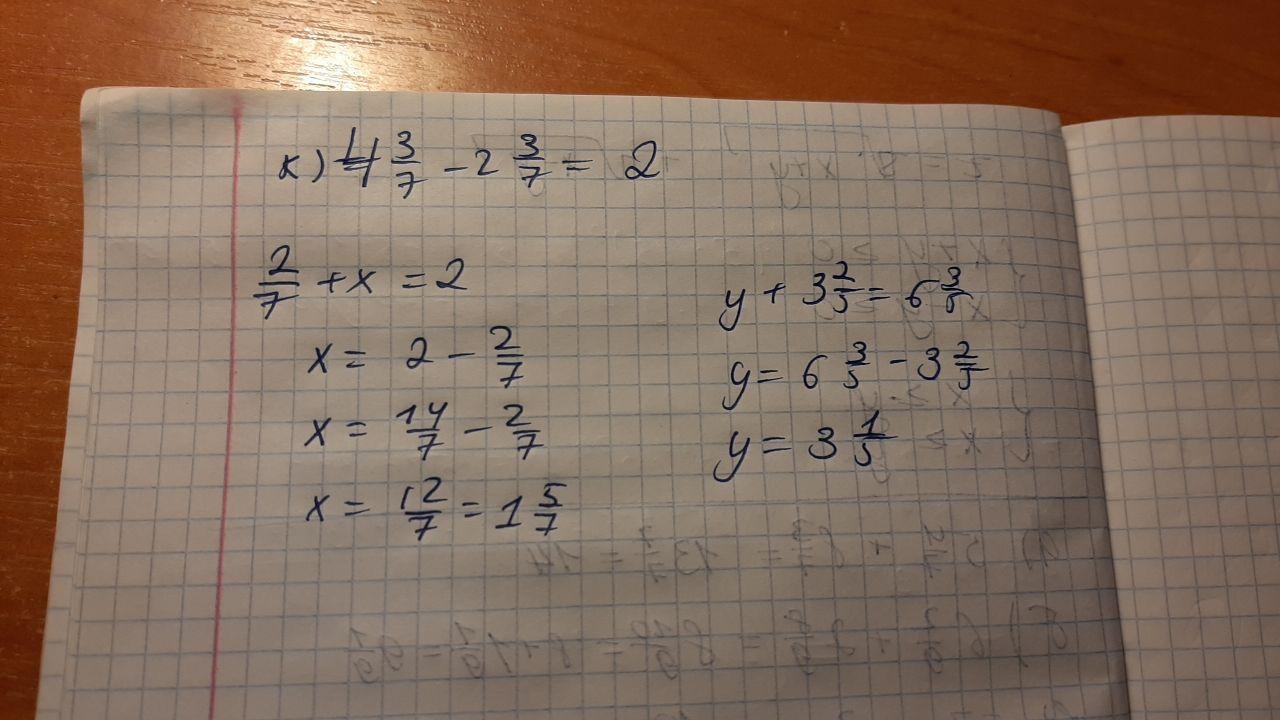 к) 4 3/7 - 2 3/7 = 2
2/7 + x = 2
x = 2 - 2/7
x = 14/7 - 2/7
x = 12/7 = 1 5/7
y + 3 2/5 = 6 3/5
y = 6 3/5 - 3 2/5
y = 3 1/5